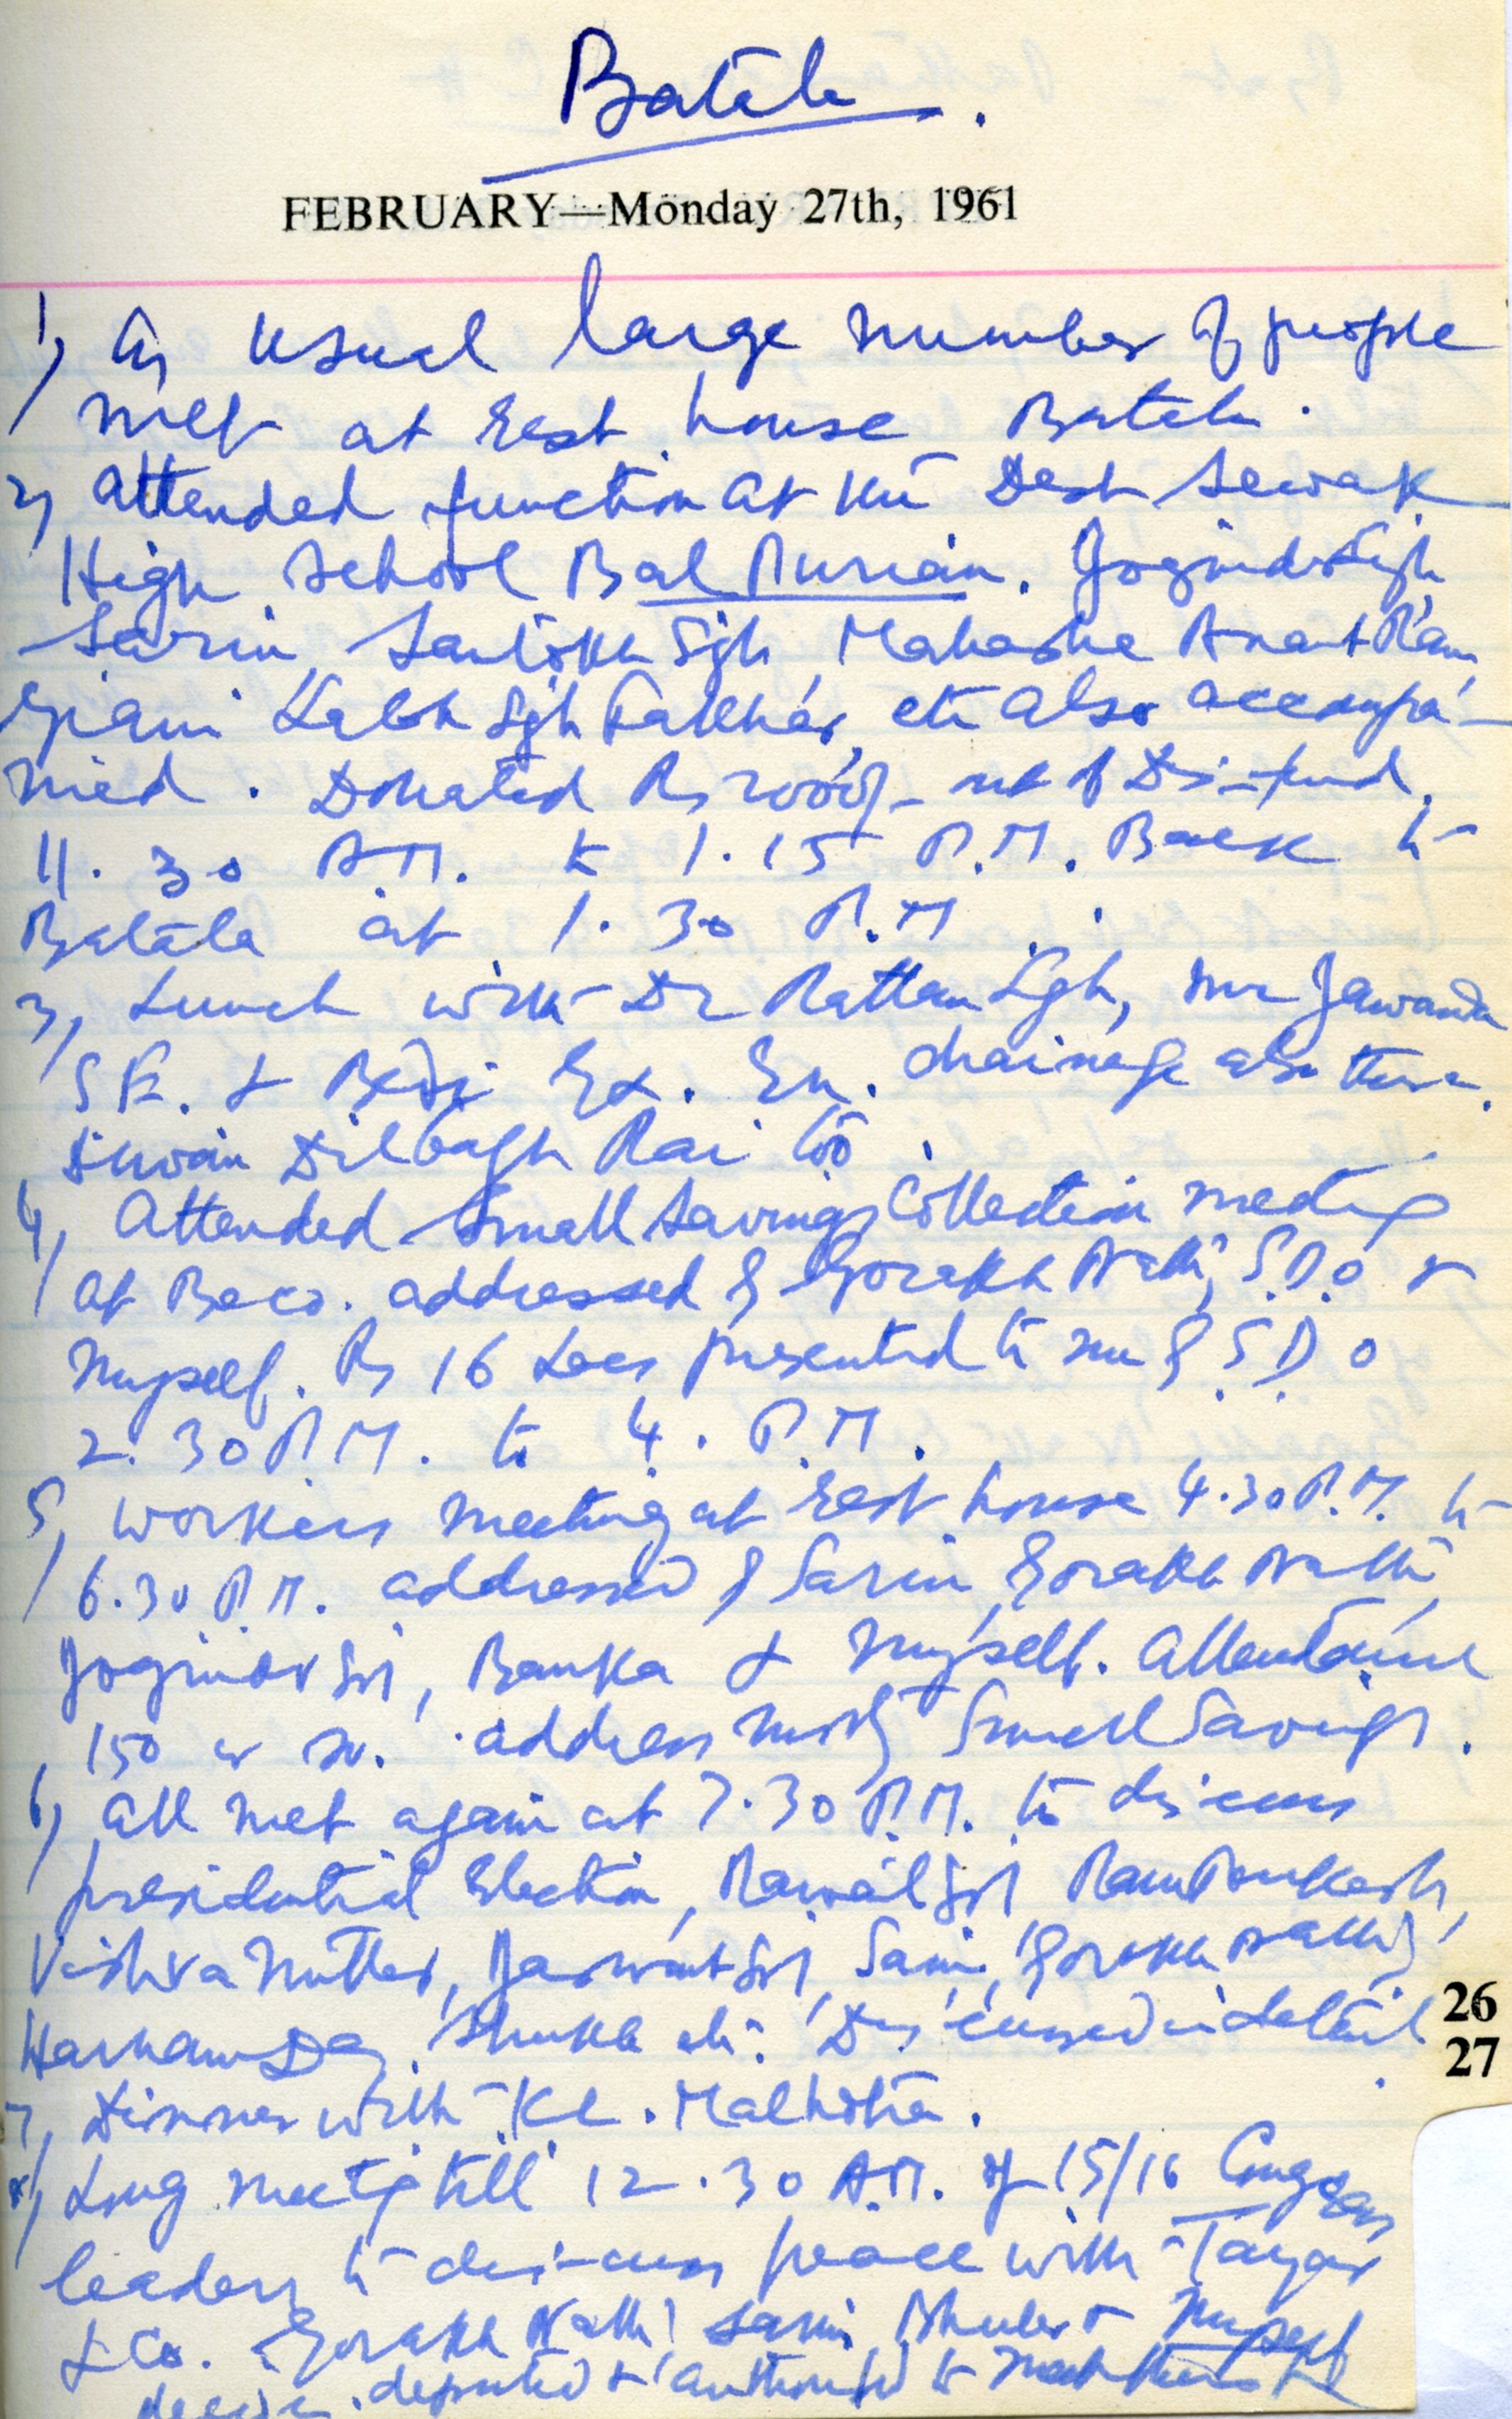 Batala.
FEBRUARY—Monday 27th, 1961
1) As usual large number of people
met at rest house Batala.
2) Attended function at the Desh Sewak
High School Bal Purian. Joginder Sigh
Sarin, Santokh Sgh Mahasha Anant Ram
Giani Labh Sgh Fakhar, etc also accompa-
nied. Donated Rs 2000/- out of Dis-fund.
11.30 A.M. to 1.15 P.M. Back to
Batala at 1.30 P.M.
3) Lunch with Dr Rattan Sgh, Mr Jawanda
S E. & Bedi Ex. En. drainage also there.
Diwan Dilbagh Rai too.
4) Attended Small Savings Collection meeting
at Beco. addressed by Gorakh Nath, S.D.O &
Myself. Rs 16 Lacs presented to me by S.D.O
2.30 P.M. to 4. P.M.
5) Workers meeting at rest house 4.30 P.M. to
6.30 P.M. addressed by Sarin, Gorakh Nath
Joginder Sgh, Banka & Myself. Attendance
150 or so. address mostly Small Savings.
6) All met again at 7.30 P.M. to discuss
presidential Election, Rawail Sgh Ram Parkash,
Vishva Mitter, Jaswant Sgh, Sarin, Gorakh Nath,
Harnam Das, Shukla etc. Discussed in detail.
7) Dinner with K.C. Malhotra.
8) Long meeting till 12.30 A.M. of 15/16 Congress
leaders to discuss peace with Tayar
& Co. Gorakh Nath, Sarin, & Myself
deputed & authorised to meet them
26
27